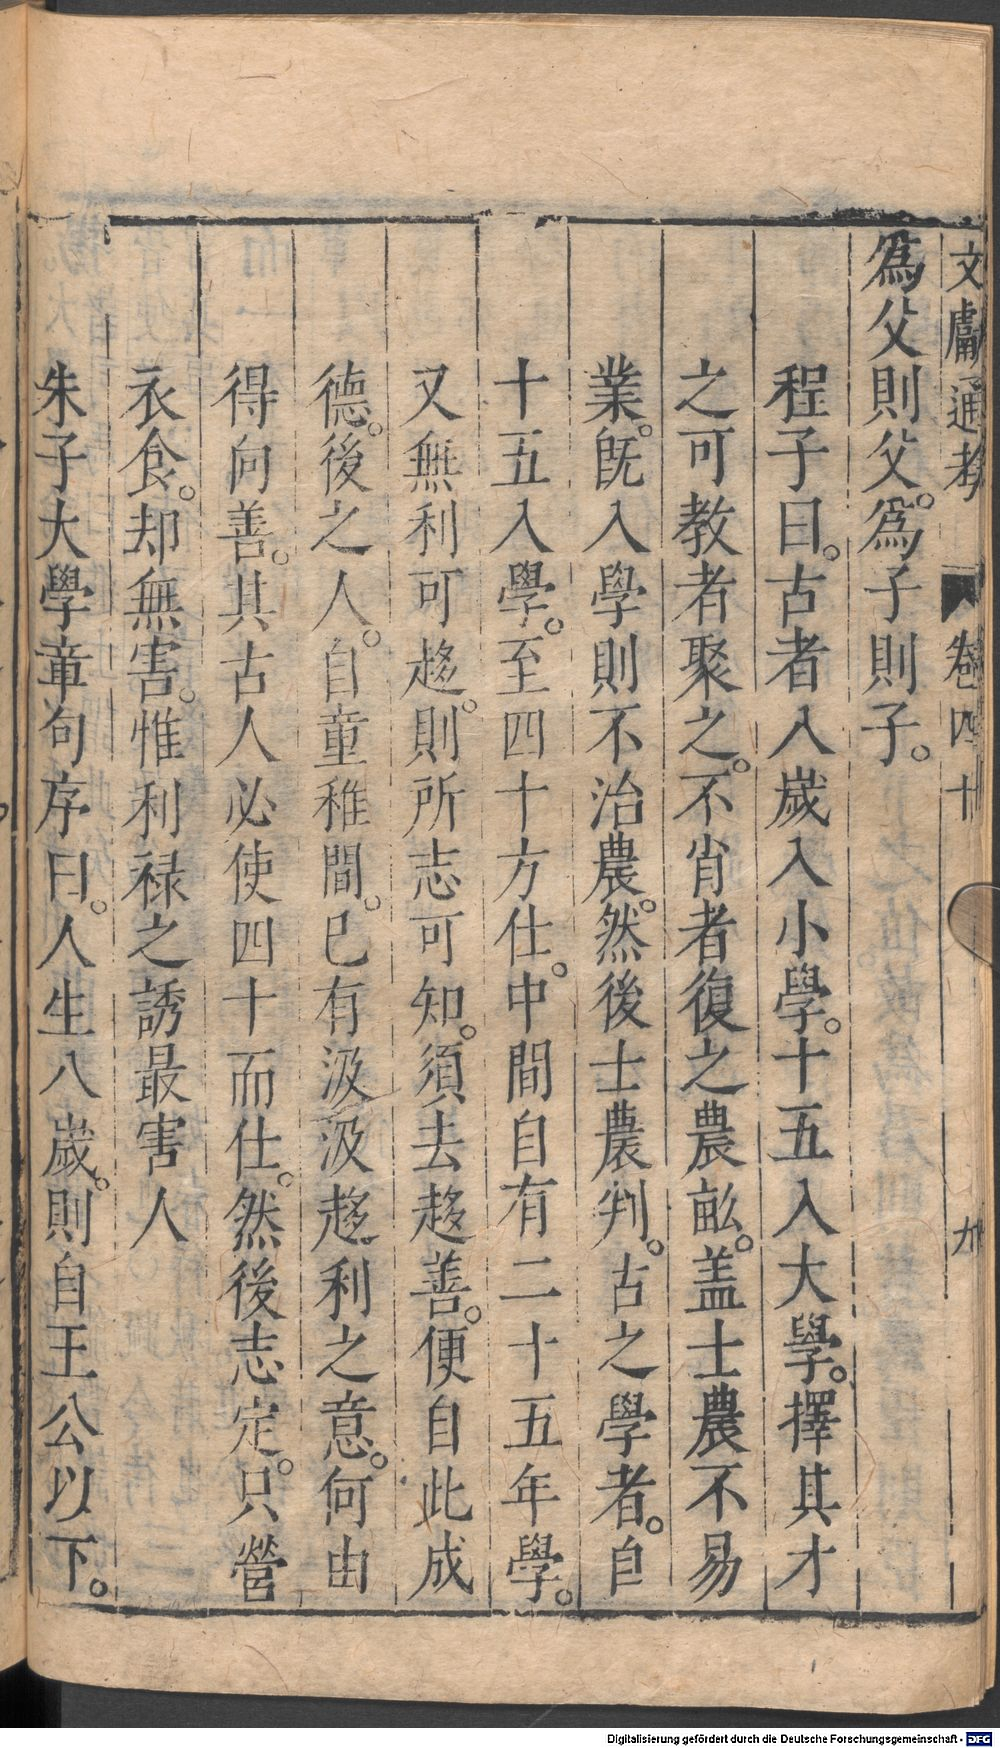 文獻通考 卷四十 九
為父則父。為子則子。
程子曰。古者八歲入小學。十五入大學。擇其才
之可教者聚之。不肖者復之農畝。盖士農不易
業。旣入學則不治農。然後士農判。古之學者。自
十五入學。至四十方仕。中間自有二十五年學。
又無利可趍。則所志可知。須去趍善。便自此成
德。後之人。自童稚間。已有汲汲趍利之意。何由
得向善。其古人必使四十而仕。然後志定。只營
衣食。却無害。惟利禄之誘最害人
朱子大學章句序曰。人生八歲。則自王公以下。
Digitalisierung gefördert durch die Deutsche Forschungsgemeinschaft - DFG